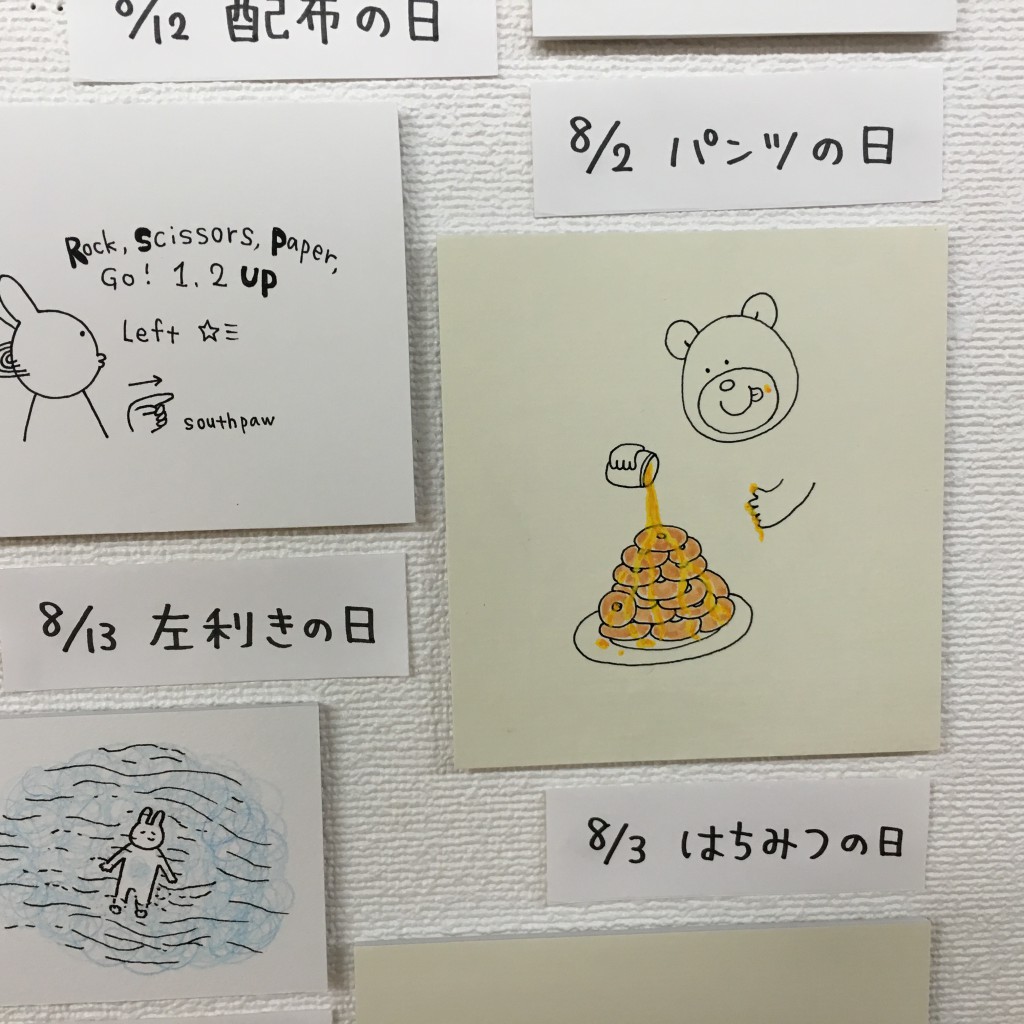 8/12 配布の日
8/2 パンツの日
Rock, Scissors, Paper,
Go! 1, 2 up
Left ☆≡
→
southpaw
8/13 左利きの日
8/3 はちみつの日